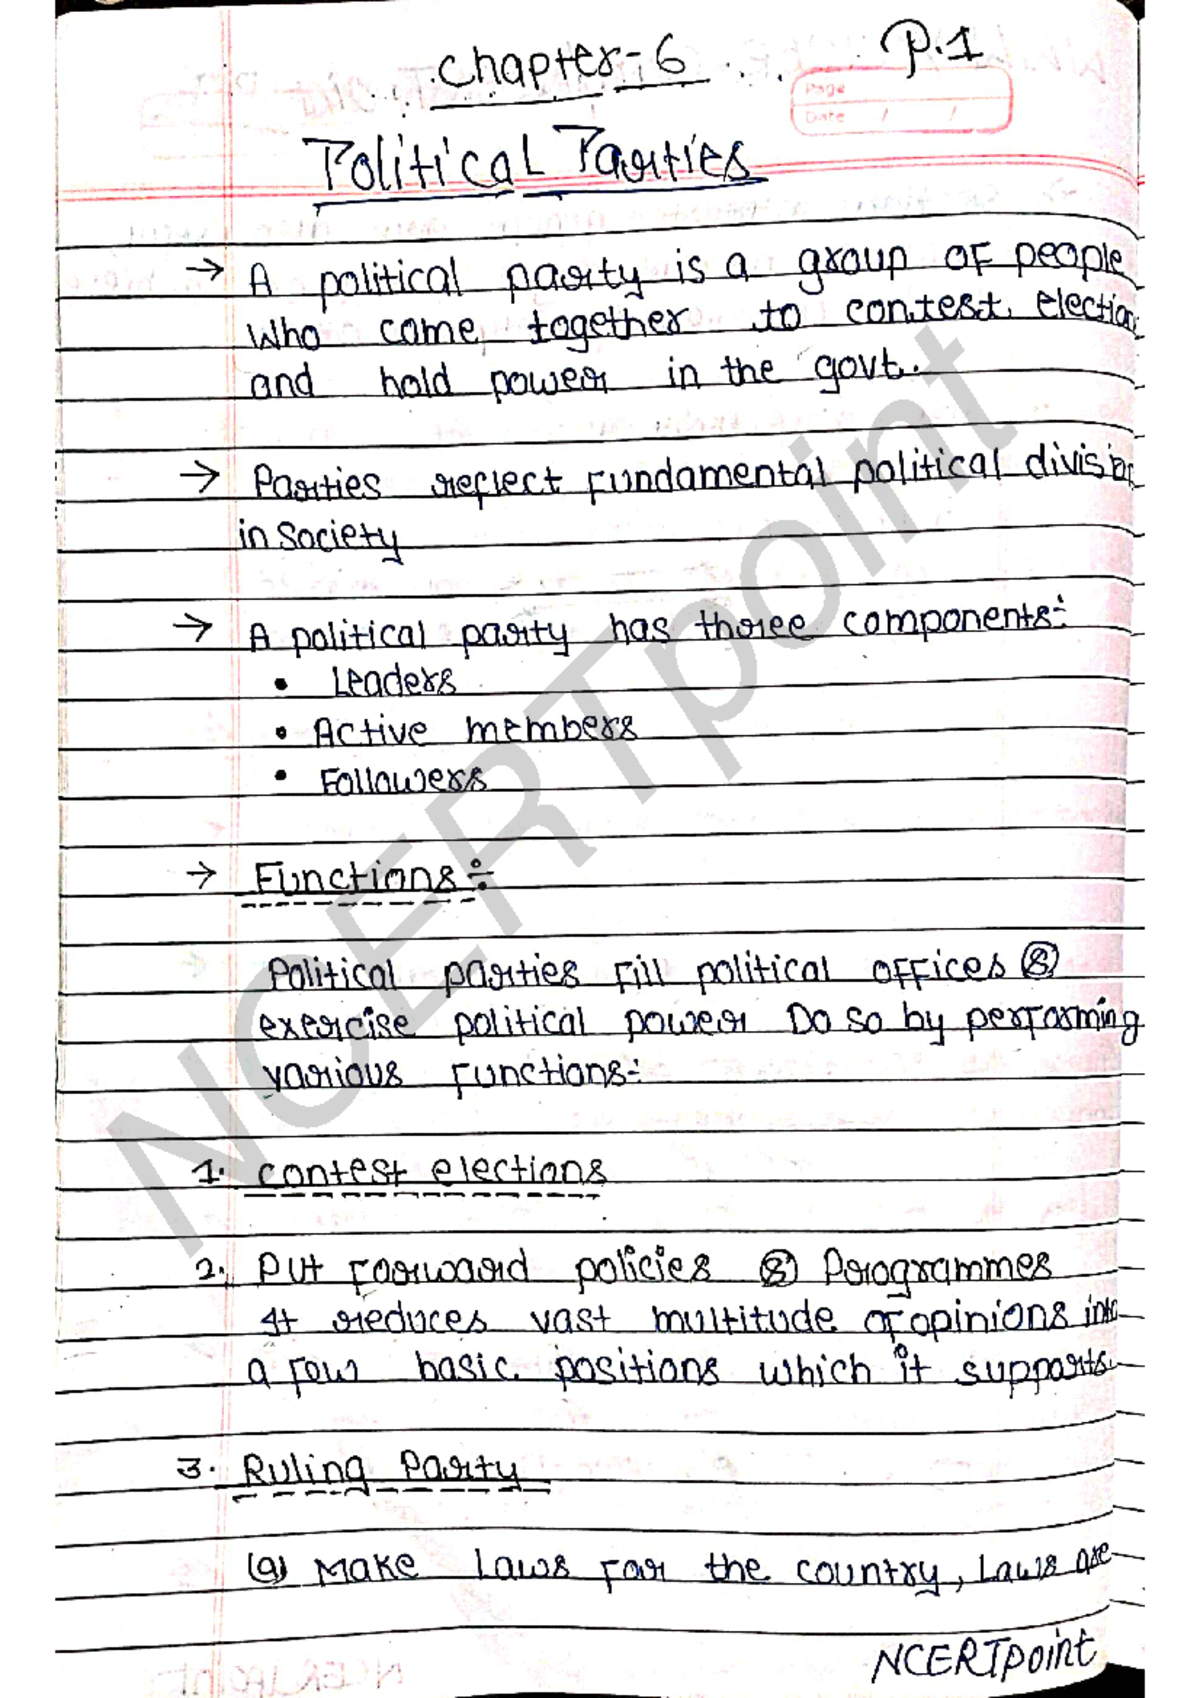 Chapter-6
P.1
Page
Date / /
Political Parties
→ A political party is a group of people
who come together to contest election
and hold power in the govt.
→ Parties reflect fundamental political division
in society
→ A political party has three components:-
• Leaders
• Active members
• Followers
→ Functions:-
Political parties fill political offices &
exercise political power Do so by performing
various functions:-
1. contest elections
2. Put forward policies & Programmes
It reduces vast multitude of opinions into
a few basic positions which it supports.
3. Ruling Party
(a) Make Laws for the country, Laws are
NCERTpoint
NCERTpoint